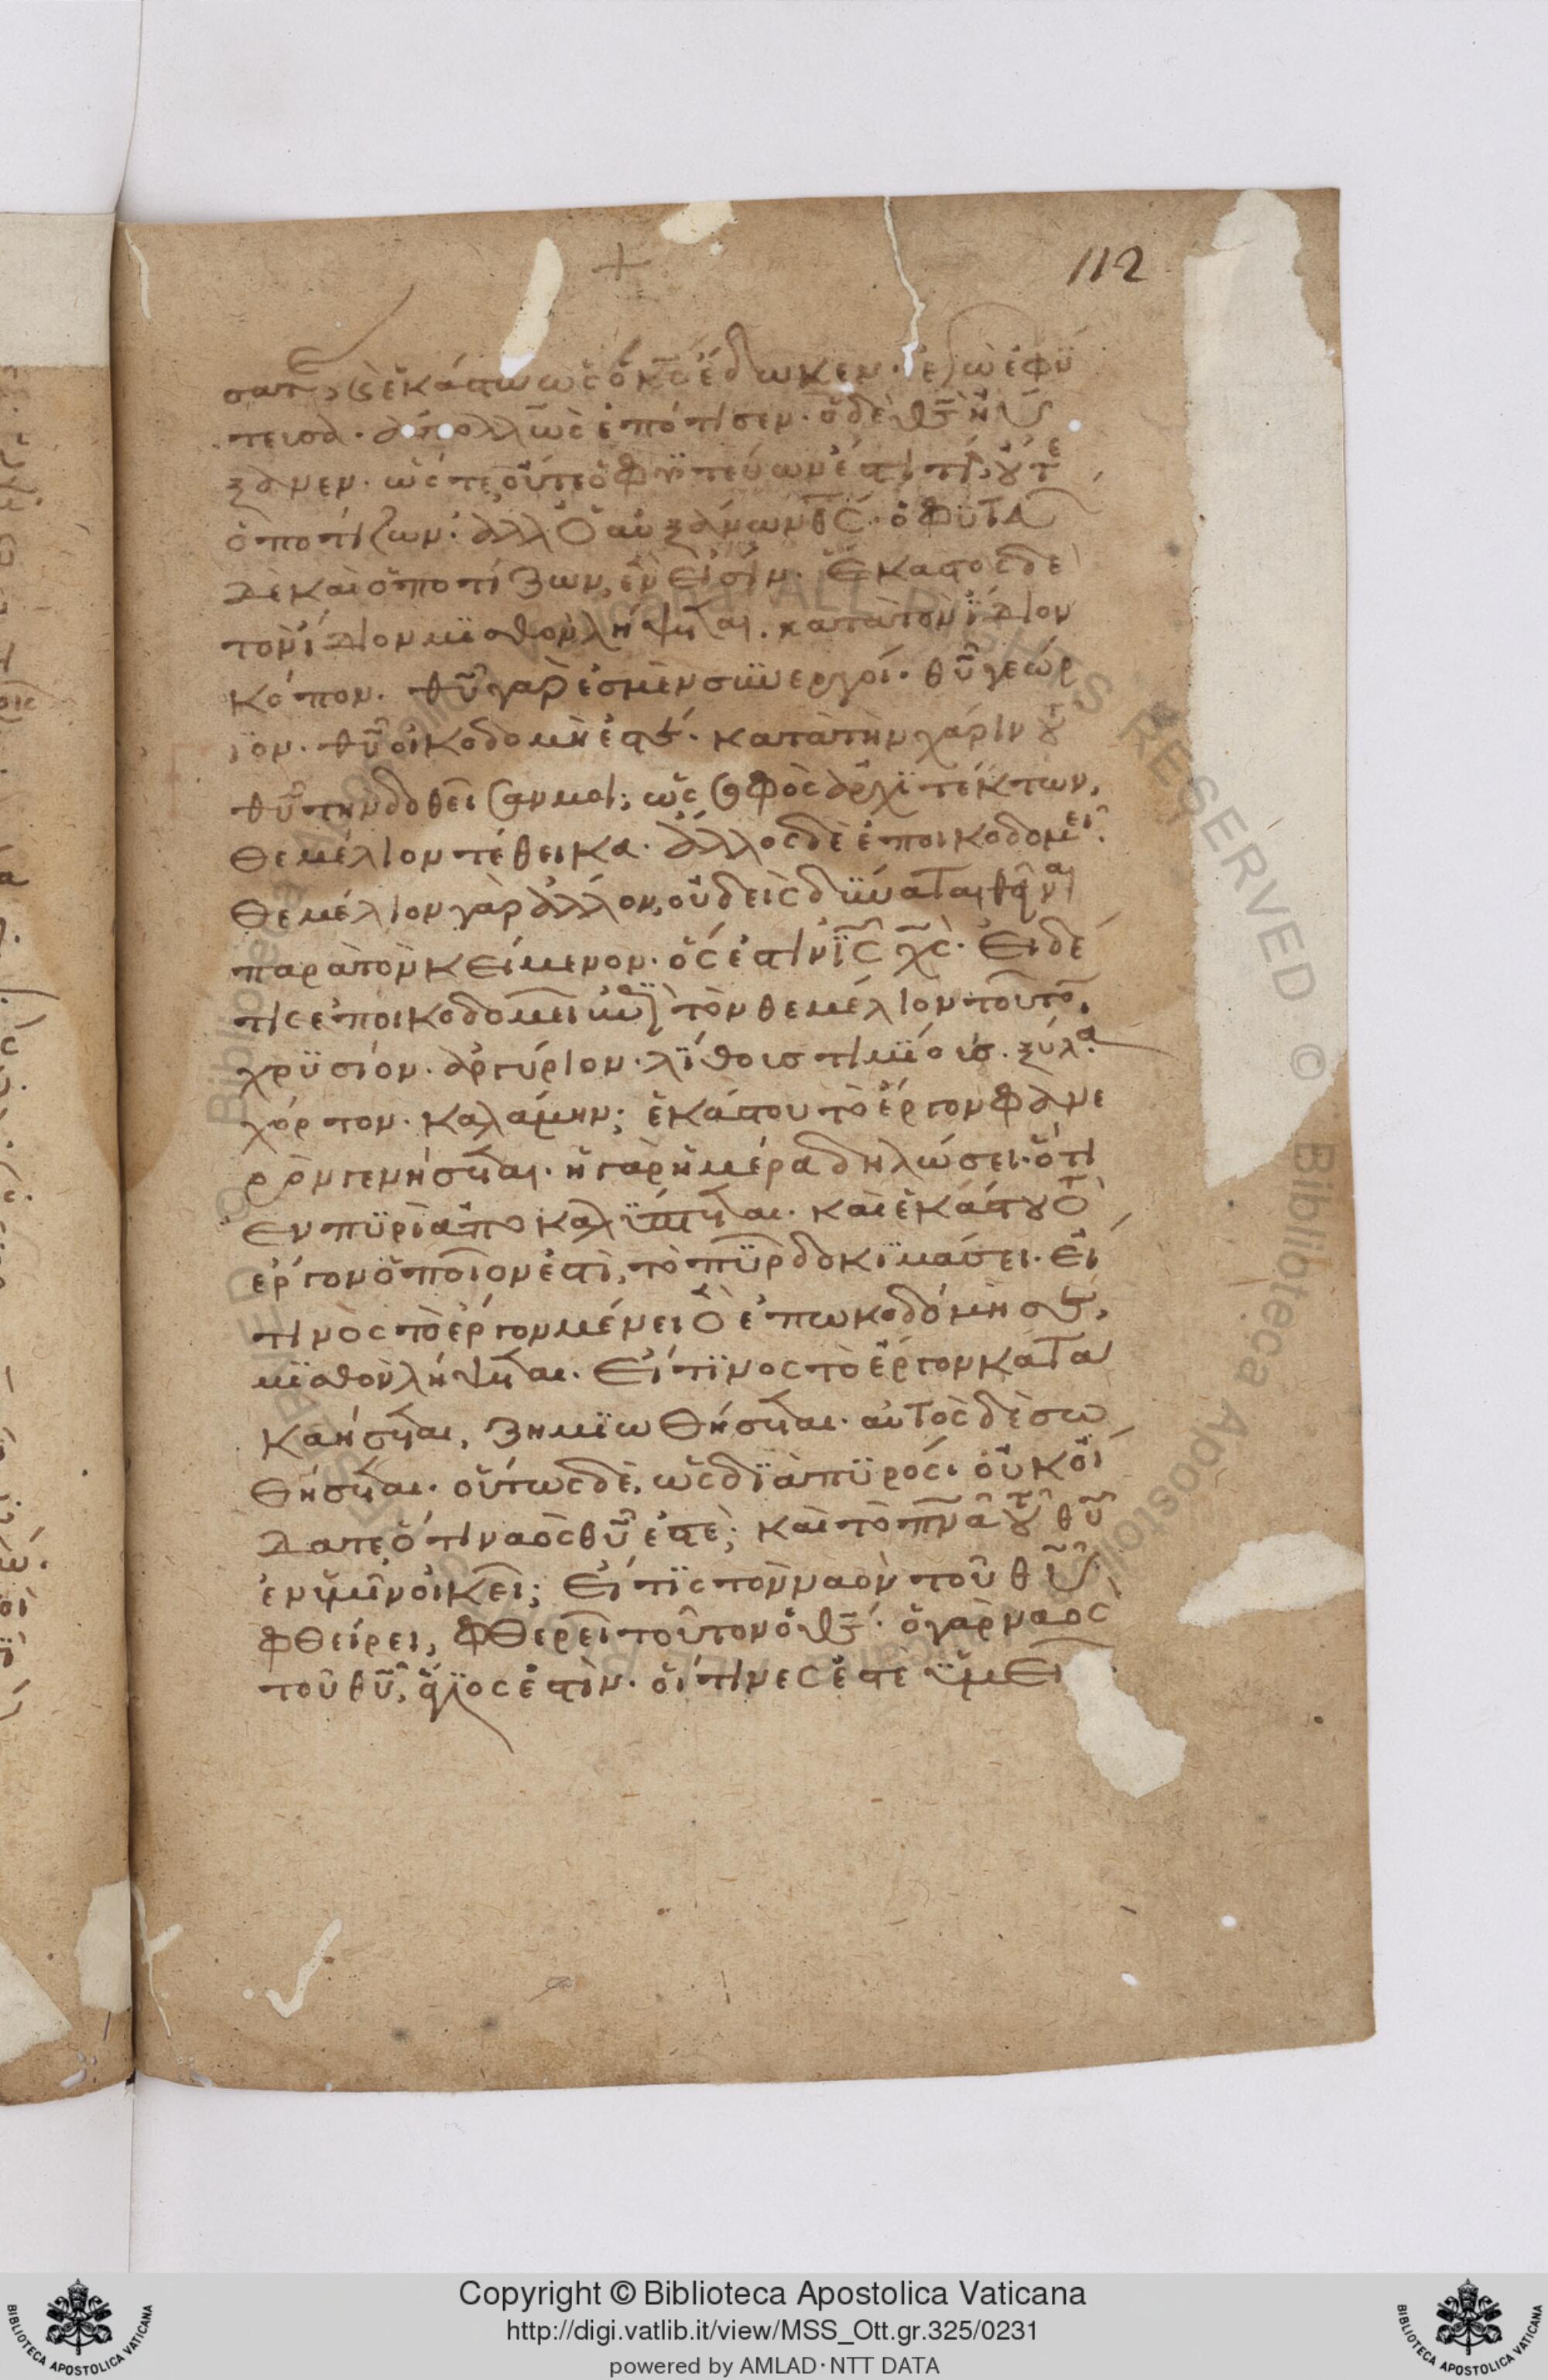 112
σατε, καὶ ἑκάστω ὡς ὁ κς ἔδωκεν· ἐγὼ ἐφύ
τευσα· ἀπολλὼς ἐπότισεν· ὁ δὲ θς ηὔ
ξανεν· ὥστε οὔτε ὁ φυτεύων ἐστί τι, οὔτε
ὁ ποτίζων· ἀλλ ὁ αὐξάνων θς· ὁ φυτεύων
δὲ καὶ ὁ ποτίζων, ἕν εἰσίν· ἕκαστος δὲ
τὸν ἴδιον μϊσθὸν λήψεται· κατὰ τὸν ἴδιον
κόπον· θῦ γάρ ἐσμεν συνεργοί· θῦ γεώρ
ϊον· θῦ οἰκοδομὴ ἐστέ· κατὰ τὴν χάριν τοῦ
θῦ τὴν δοθεῖσαν μοι; ὡς σοφὸς ἀρχϊτέκτων,
θεμέλιον τέθεικα· ἄλλος δὲ ἐποικοδομεῖ·
θεμέλιον γὰρ ἄλλον, οὐδεὶς δύναται θεῖναι
παρὰ τὸν κείμενον· ὅς ἐστιν ϊς χς· Εἰ δέ
τις ἐποικοδομεῖ ἐπὶ τὸν θεμέλιον τοῦτον,
χρϋσίον· ἀργύριον· λίθοις τιμϊοις· ξύλα·
χόρτον· καλάμην; ἑκάστου τὸ ἔργον φανε
ρὸν γενήσεται· ἡ γὰρ ἡμέρα δηλώσει· ὅτι
ἐν πϋρὶ ἀποκαλϋπτεται· καὶ ἑκάστου τὸ
ἔργον ὁποῖον ἐστὶ, τὸ πῦρ δοκϊμάσει· Εἴ
τινὸς τὸ ἔργον μένει ὃ ἐπωκοδόμησε,
μϊσθὸν λήψεται· Εἴ τϊνος τὸ ἔργον κατα
καήσεται, ζημϊωθήσεται· αὐτὸς δὲ σω
θήσεται· οὕτως δὲ, ὡς δϊὰ πϋρός· οὐκ οἴ
δατε ὅτι ναὸς θῦ ἐστὲ; καὶ τὸ πνα τοῦ θῦ
ἐν ὑμῖν οἰκεῖ; Εἴ τϊς τὸν ναὸν τοῦ θῦ
φθείρει, φθερεῖ τοῦτον ὁ θς· ὁ γὰρ ναὸς
τοῦ θῦ, ἅγϊος ἐστὶν· οἵτινες ἐστὲ ὑμεῖ
Copyright © Biblioteca Apostolica Vaticana
http://digi.vatlib.it/view/MSS_Ott.gr.325/0231
powered by AMLAD·NTT DATA